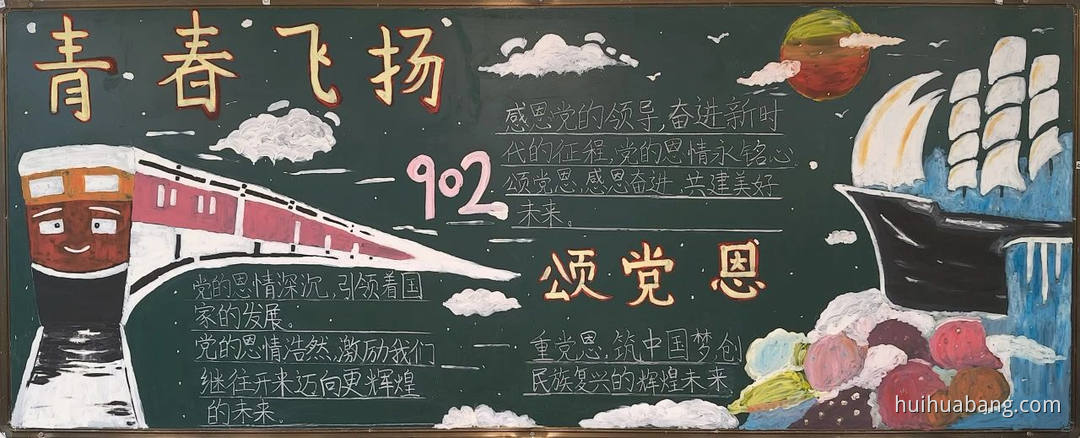 青春飞扬
902
感恩党的领导,奋进新时
代的征程,党的恩情永铭心
颂党恩,感恩奋进,共建美好
未来。
颂党恩
党的恩情深沉,引领着国
家的发展。
党的恩情浩然,激励我们
继往开来迈向更辉煌
的未来。
重党恩,筑中国梦创
民族复兴的辉煌未来
huihuabang.com